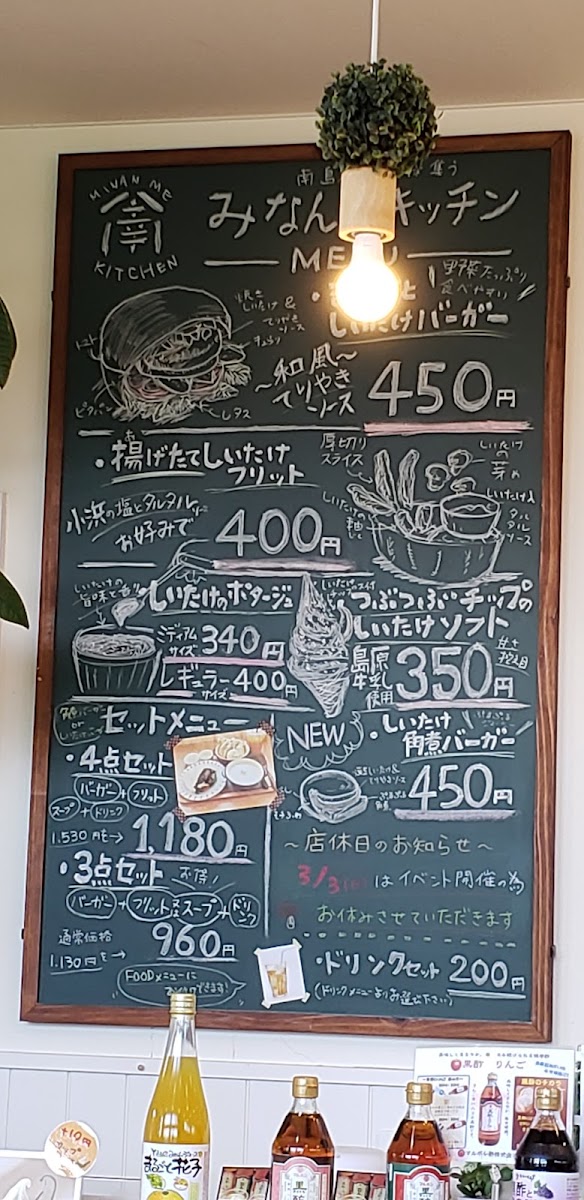 MINAN ME
KITCHEN
南島
集う
みなん
キッチン
MENU
野菜たっぷり
食べやすい
しいたけバーガー
焼き
しいたけ&
てりやき
ソース
レタス
〜和風〜
てりやき
ソース
450円
・揚げたてしいたけ
フリット
厚切り
スライス
小浜の塩とタルタル
お好みで
400円
しいたけ
の
タル
タル
ソース
・しいたけのポタージュ
しいたけの
ミディアム
サイズ
340円
レギュラー
サイズ
400円
つぶつぶチップの
しいたけソフト
島原
牛乳
使用
350円
甘さ
控え目
セットメニュー
・4点セット
バーガー+フリット
スープ+ドリンク
1.530円を→
1,180円
・3点セット
お得!
バーガー+フリット又はスープ+ドリンク
通常価格
1.130円を→
960円
FOODメニューに
NEW
・しいたけ
角煮バーガー
450円
〜店休日のお知らせ〜
3/3
はイベント開催の為
お休みさせていただきます
・ドリンクセット 200円
(ドリンクメニューよりお選び下さい)
まるごと花子
黒酢 りんご